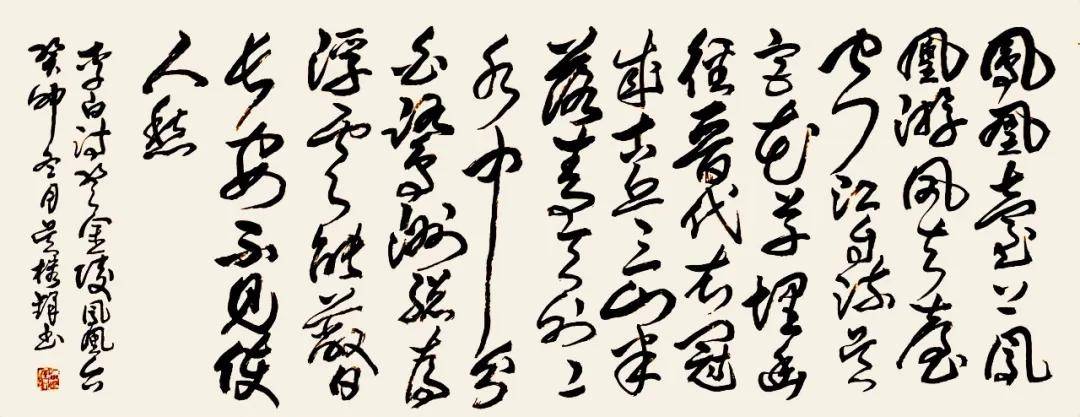 鳳凰臺上鳳
凰游鳳去臺
空江自流吴
宫花草埋幽
径晋代衣冠
成古丘三山半
落青天外二
水中分
白鹭洲總為
浮雲能蔽日
長安不見使
人愁
李白诗登金陵鳳凰台
癸卯冬月吴书